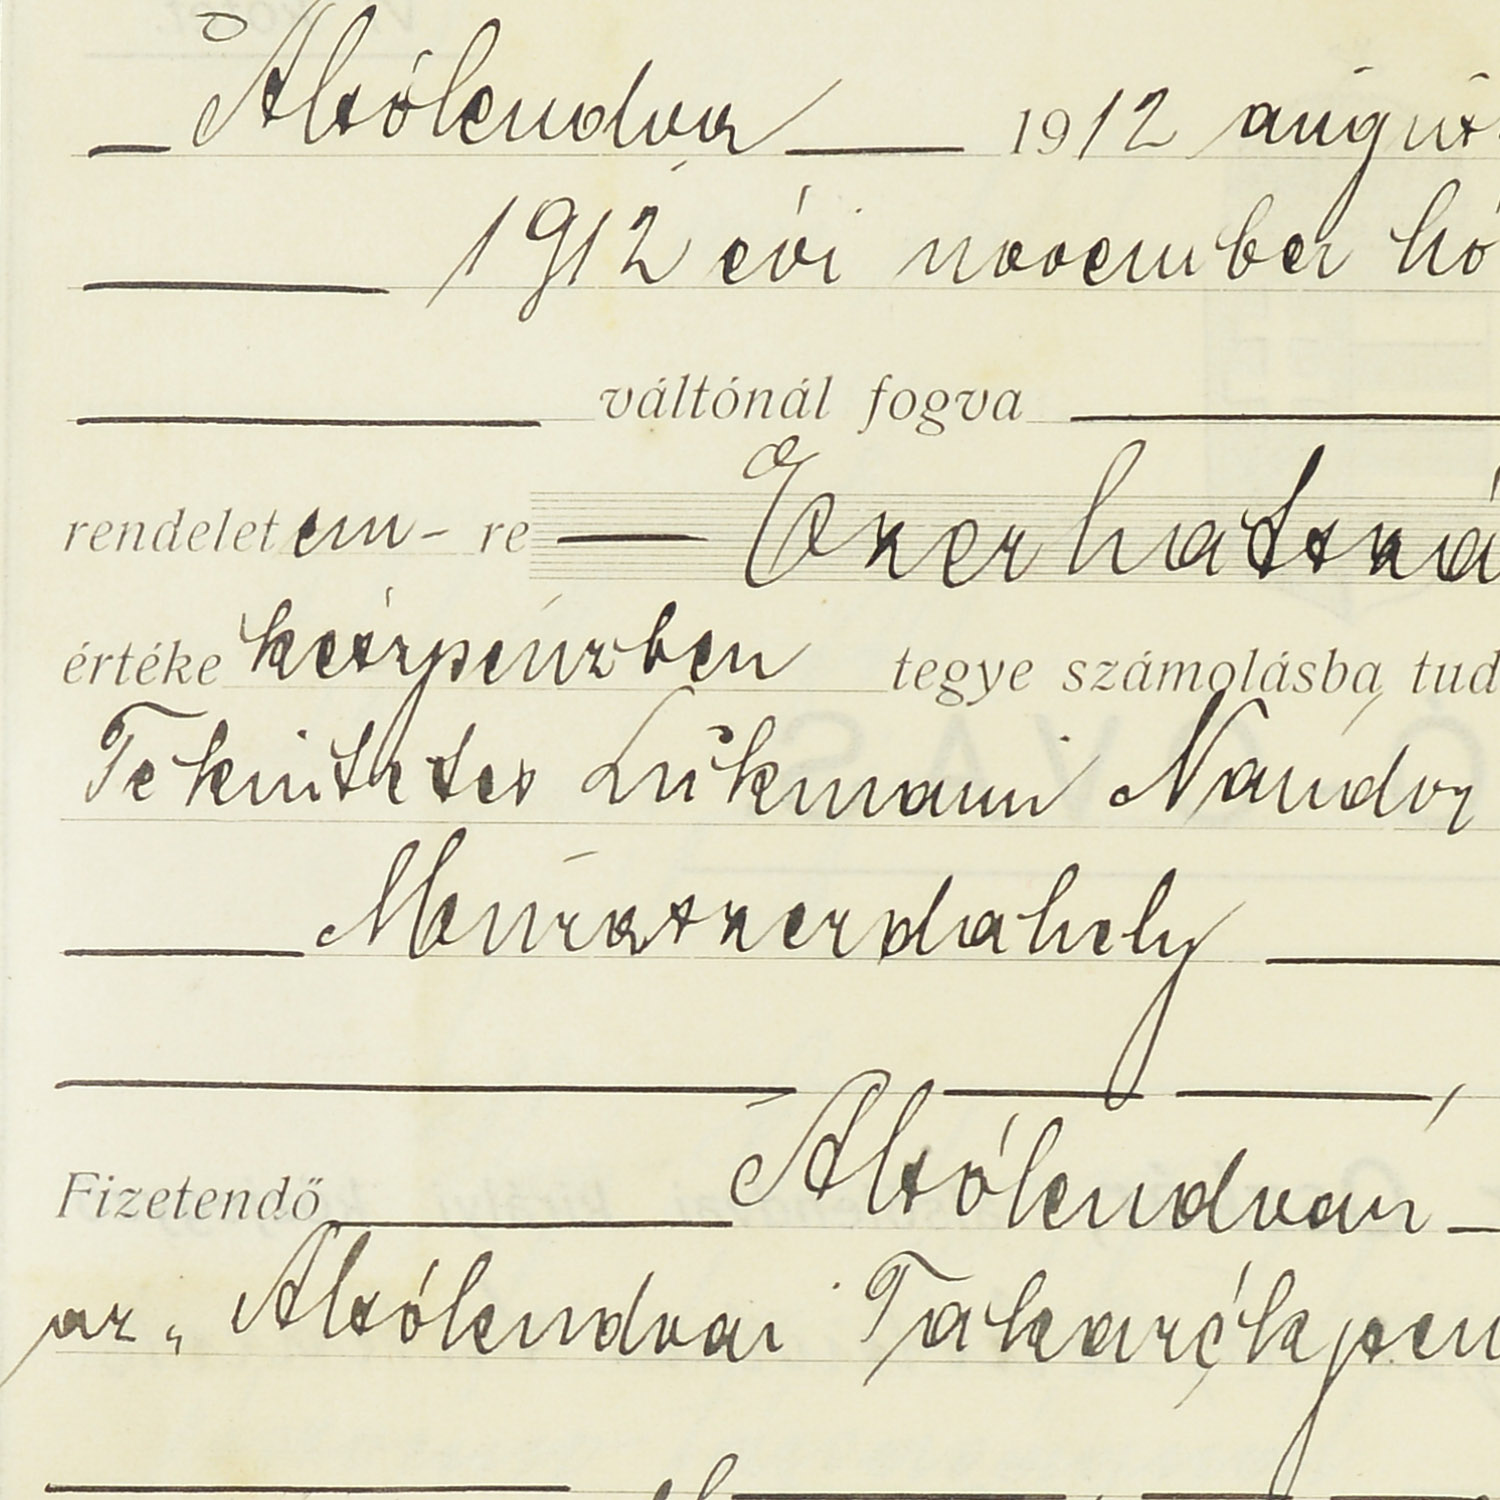 Alsólendva 1912 august
1912 évi november hó
váltónál fogva
rendeletem- re Ezerhatszá
értéke készpénzben tegye számolásba, tud
Tekintetes Lukmann Nándor
Muraszerdahely
Fizetendő Alsólendván
az „Alsólendvai Takarékpén